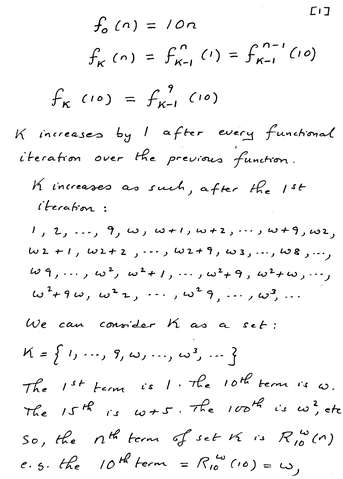 [1]
f₀(n) = 10n
f_K(n) = f_{K-1}^n(1) = f_{K-1}^{n-1}(10)
f_K(10) = f_{K-1}^9(10)
K increases by 1 after every functional
iteration over the previous function.
K increases as such, after the 1st
iteration :
1, 2, ..., 9, ω, ω+1, ω+2, ..., ω+9, ω2,
ω2+1, ω2+2, ..., ω2+9, ω3, ..., ω8, ...,
ω9, ..., ω², ω²+1, ..., ω²+9, ω²+ω, ...,
ω²+9ω, ω²2, ..., ω²9, ..., ω³, ...
We can consider K as a set :
K = { 1, ..., 9, ω, ..., ω³, ... }
The 1st term is 1. The 10th term is ω.
The 15th is ω+5. The 100th is ω², etc
So, the nth term of set K is R₁₀^ω(n)
e.g. the 10th term = R₁₀^ω(10) = ω,